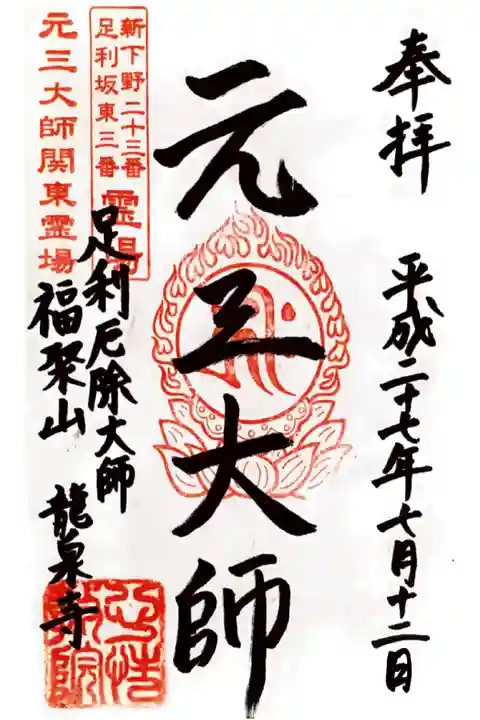 奉拝 平成二十七年七月十二日
元三大師
新下野二十三番
足利坂東三番
霊場
元三大師関東霊場
足利厄除大師
福聚山 龍泉寺